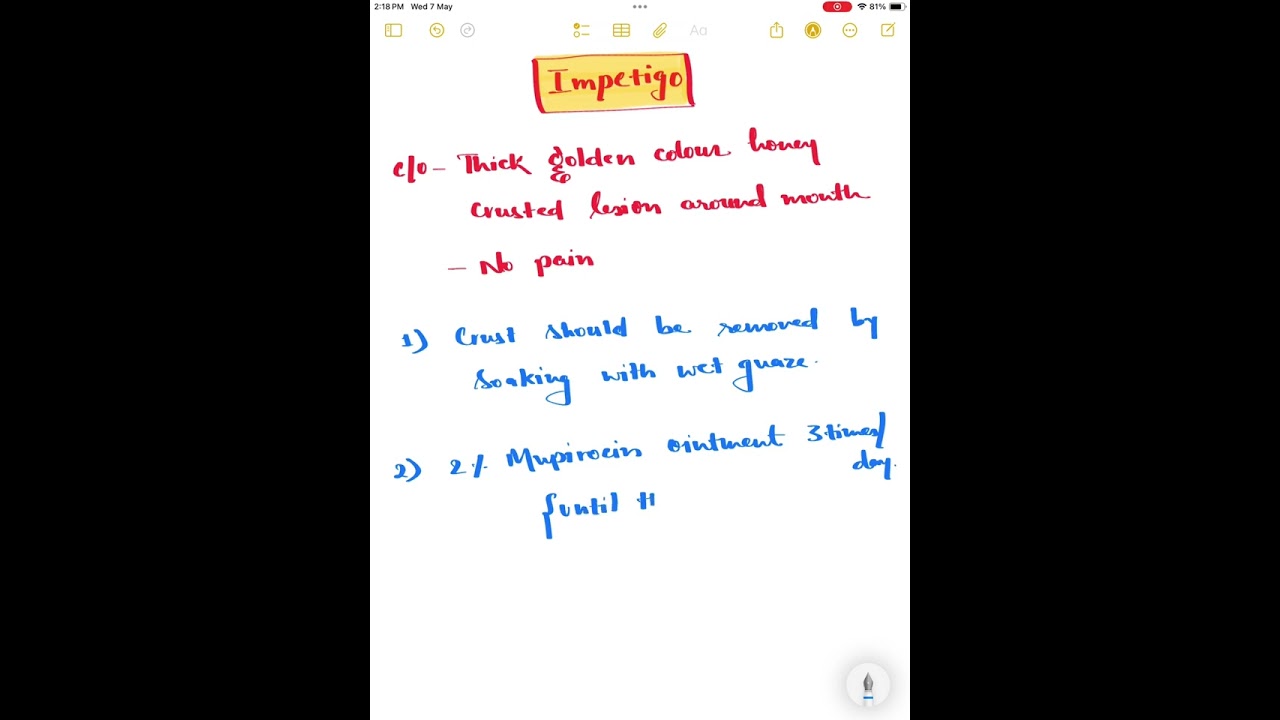 2:18 PM Wed 7 May
81%
Aa
Impetigo
c/o - Thick golden colour honey
crusted lesion around mouth
- No pain
1) Crust should be removed by
soaking with wet guaze.
2) 2% Mupirocin ointment 3 times/
day.
{until